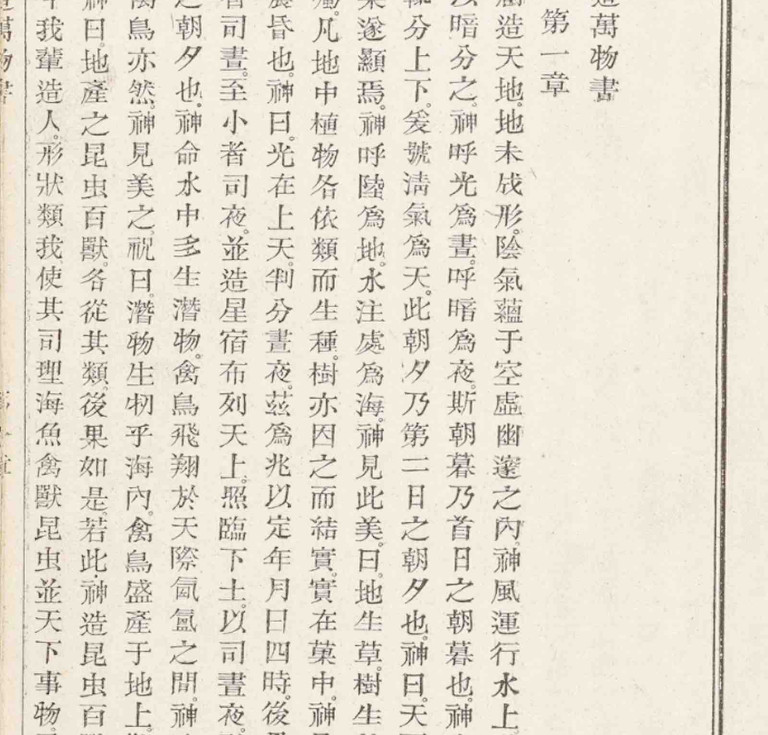 造萬物書
第一章
造天地。地未成形。陰氣蘊于空虛幽邃之內。神風運行水上
暗分之。神呼光爲晝。呼暗爲夜。斯朝暮乃首日之朝暮也。神
分上下。爰號淸氣爲天。此朝夕乃第二日之朝夕也。神曰。天
果遂顯焉。神呼陸爲地。水注處爲海。神見此美。曰。地生草。樹生
凡地中植物各依類而生種。樹亦因之而結實。實在菓中。神
晨昏也。神曰。光在上天。判分晝夜。茲爲兆以定年月日四時。後
者司晝。至小者司夜。並造星宿布列天上。照臨下土。以司晝夜。
之朝夕也。神命水中多生潛物。禽鳥飛翔於天際氤氳之間。神
禽鳥亦然。神見美之。祝曰。潛物生牣乎海內。禽鳥盛產于地上。
神曰。地產之昆虫百獸。各從其類。後果如是。若此。神造昆虫百
我輩造人。形狀類我使其司理海魚禽獸昆虫並天下事物。
萬物書